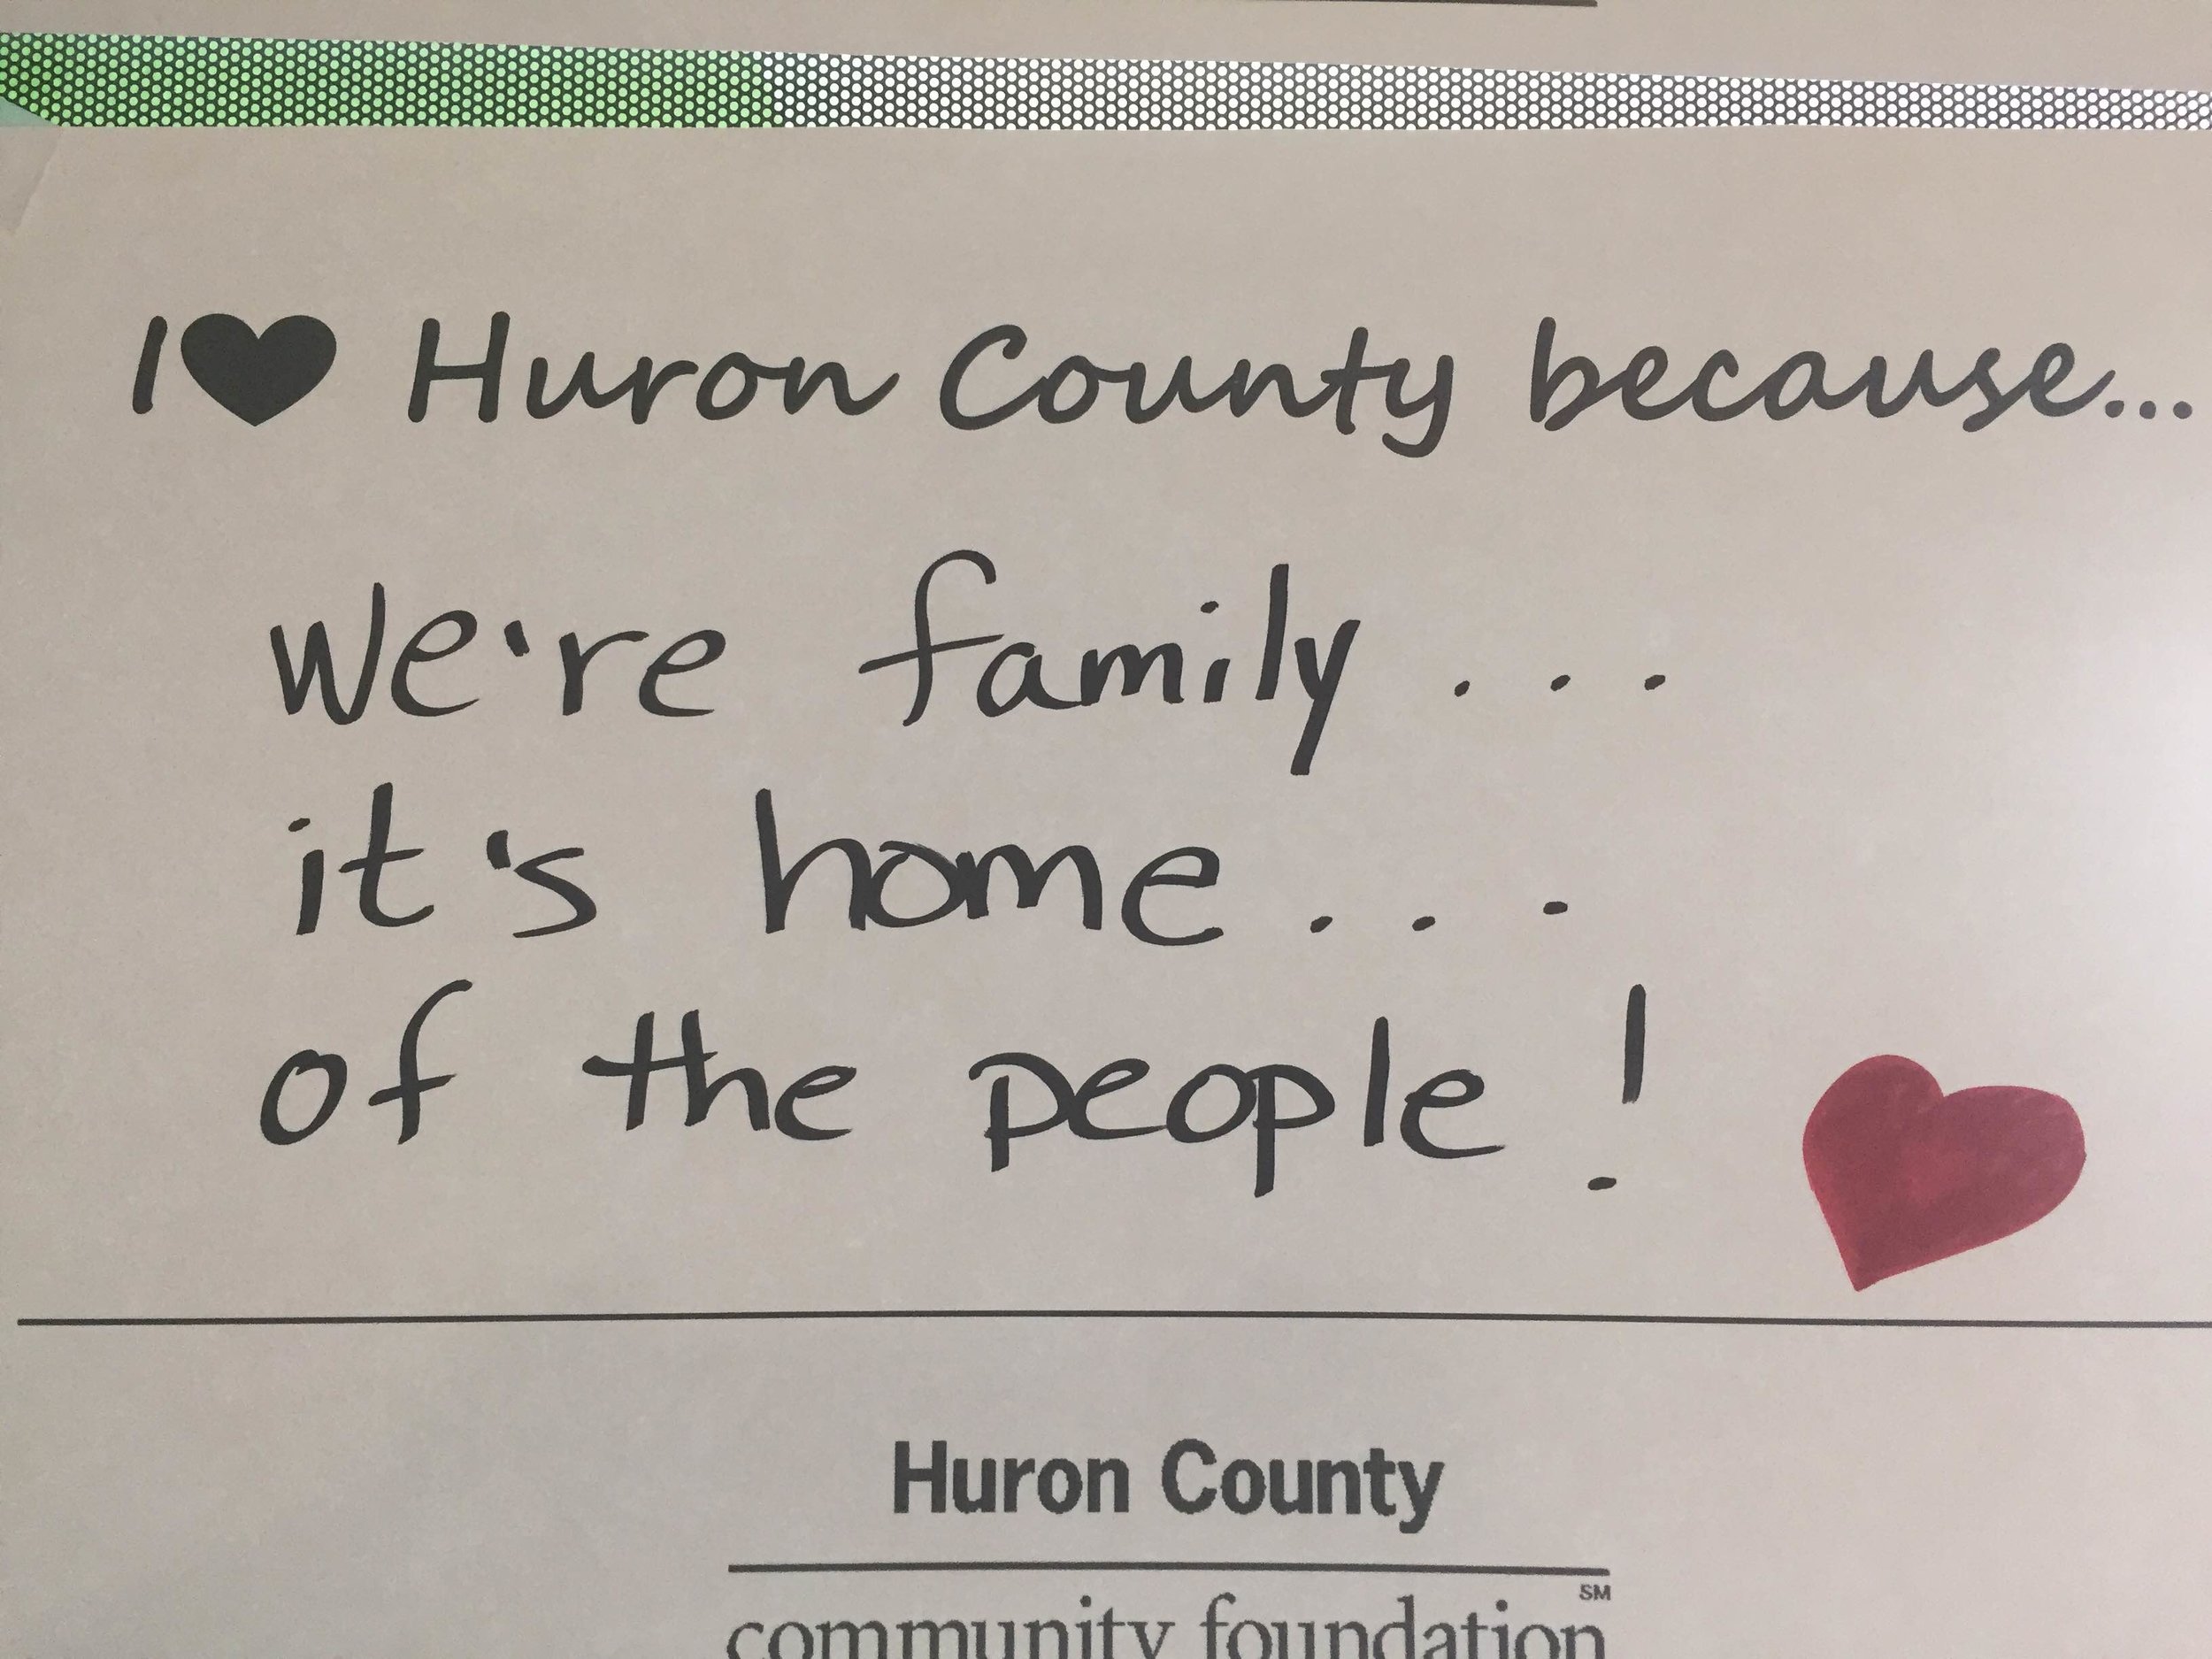 I♥ Huron County because...
we're family...
it's home...
of the people!
Huron County
community foundation SM